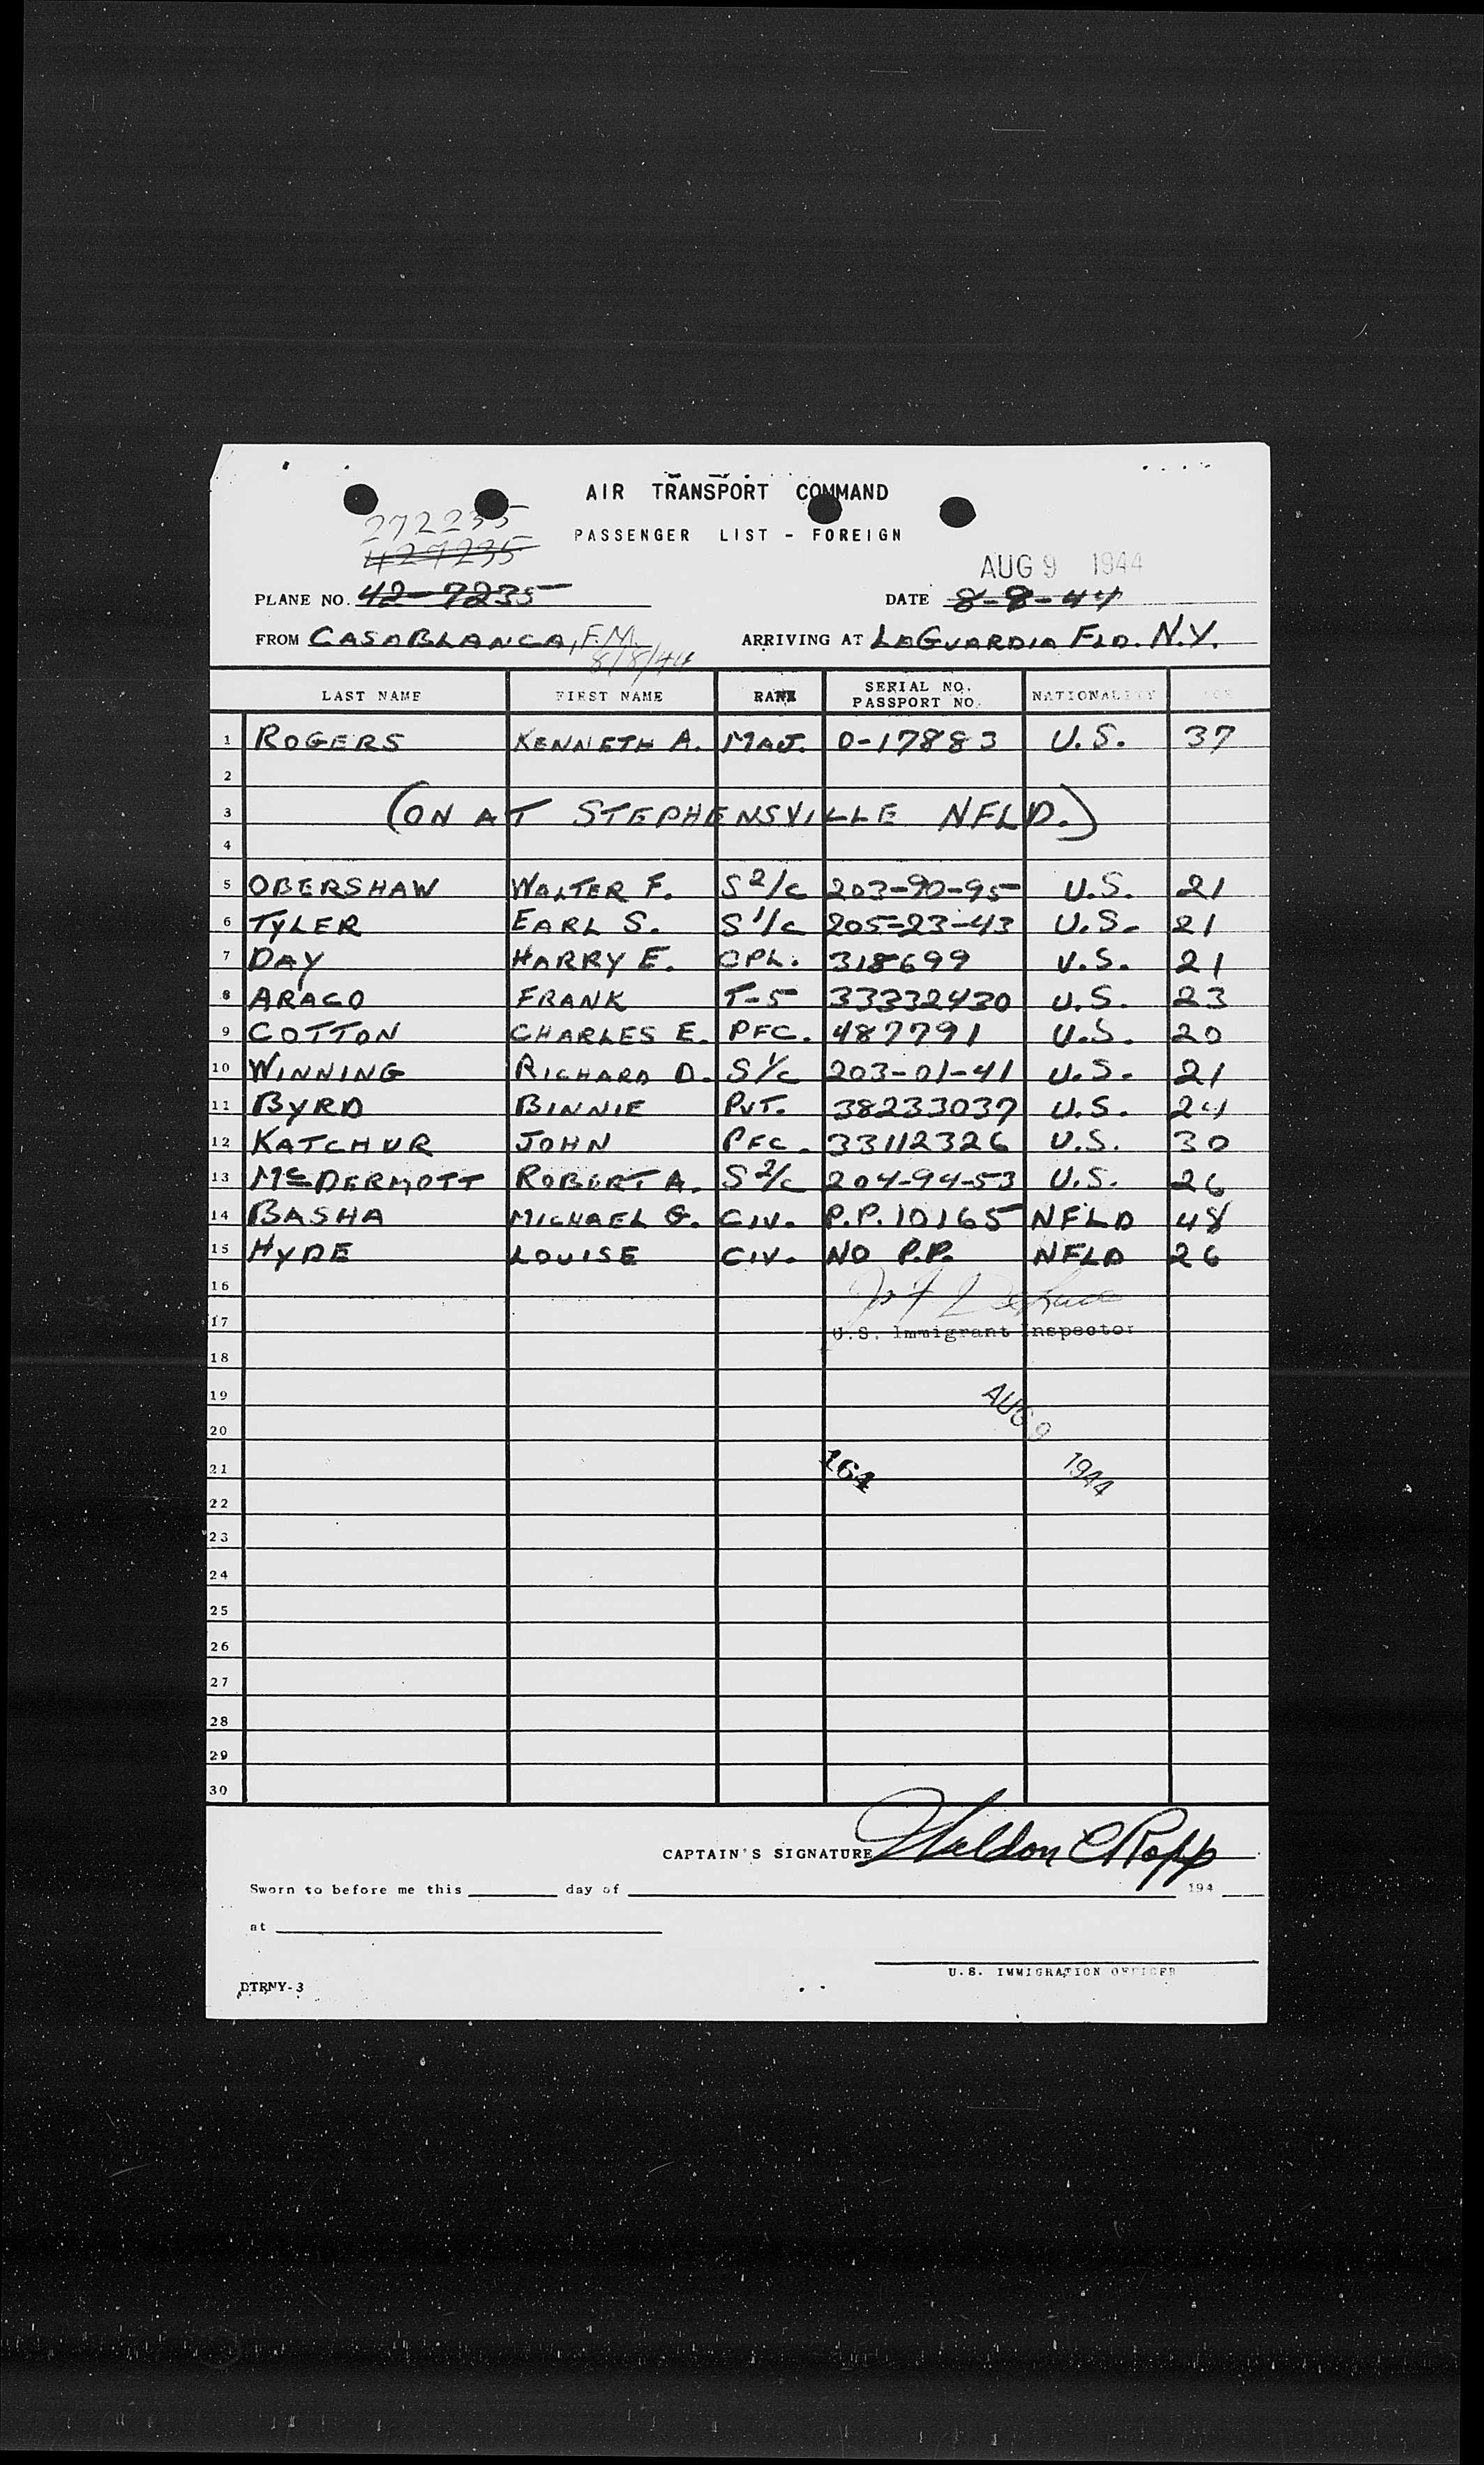 AIR TRANSPORT COMMAND
272235
PASSENGER LIST - FOREIGN
429235
AUG 9 1944
PLANE NO. 42-7235 DATE 8-8-44
FROM CASABLANCA, F.M. ARRIVING AT LAGUARDIA FLD. N.Y.
8/8/44
LAST NAME FIRST NAME RANK SERIAL NO. PASSPORT NO. NATIONALITY AGE
1 ROGERS KENNETH A. MAJ. O-17883 U.S. 37
2
3 (ON AT STEPHENSVILLE NFLD.)
4
5 OBERSHAW WALTER F. S 2/c 203-90-95 U.S. 21
6 TYLER EARL S. S 1/c 205-23-43 U.S. 21
7 DAY HARRY E. CPL. 318699 U.S. 21
8 ARAGO FRANK T-5 33332430 U.S. 23
9 COTTON CHARLES E. PFC. 487791 U.S. 20
10 WINNING RICHARD D. S 1/c 203-01-41 U.S. 21
11 BYRD BINNIE PVT. 38233037 U.S. 24
12 KATCHUR JOHN PFC. 33112326 U.S. 30
13 McDERMOTT ROBERT A. S 2/c 204-94-53 U.S. 26
14 BASHA MICHAEL G. CIV. P.P. 10165 NFLD 48
15 HYDE LOUISE CIV. NO P.P. NFLD 26
16
17 U.S. Immigrant Inspector
18
19 AUG 9
20
21 164 1944
22
23
24
25
26
27
28
29
30
CAPTAIN'S SIGNATURE Weldon C Ropp
Sworn to before me this day of 194
at
U.S. IMMIGRATION OFFICER
DTRNY-3